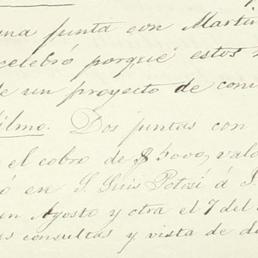 una junta con Martin
celebró porque estos
e un proyecto de conv
ilmo. Dos juntas con
el cobro de $5000, valo
ó en S. Luis Potosí á J.
un Agosto y otra el 7 del
as consultas y vista de d